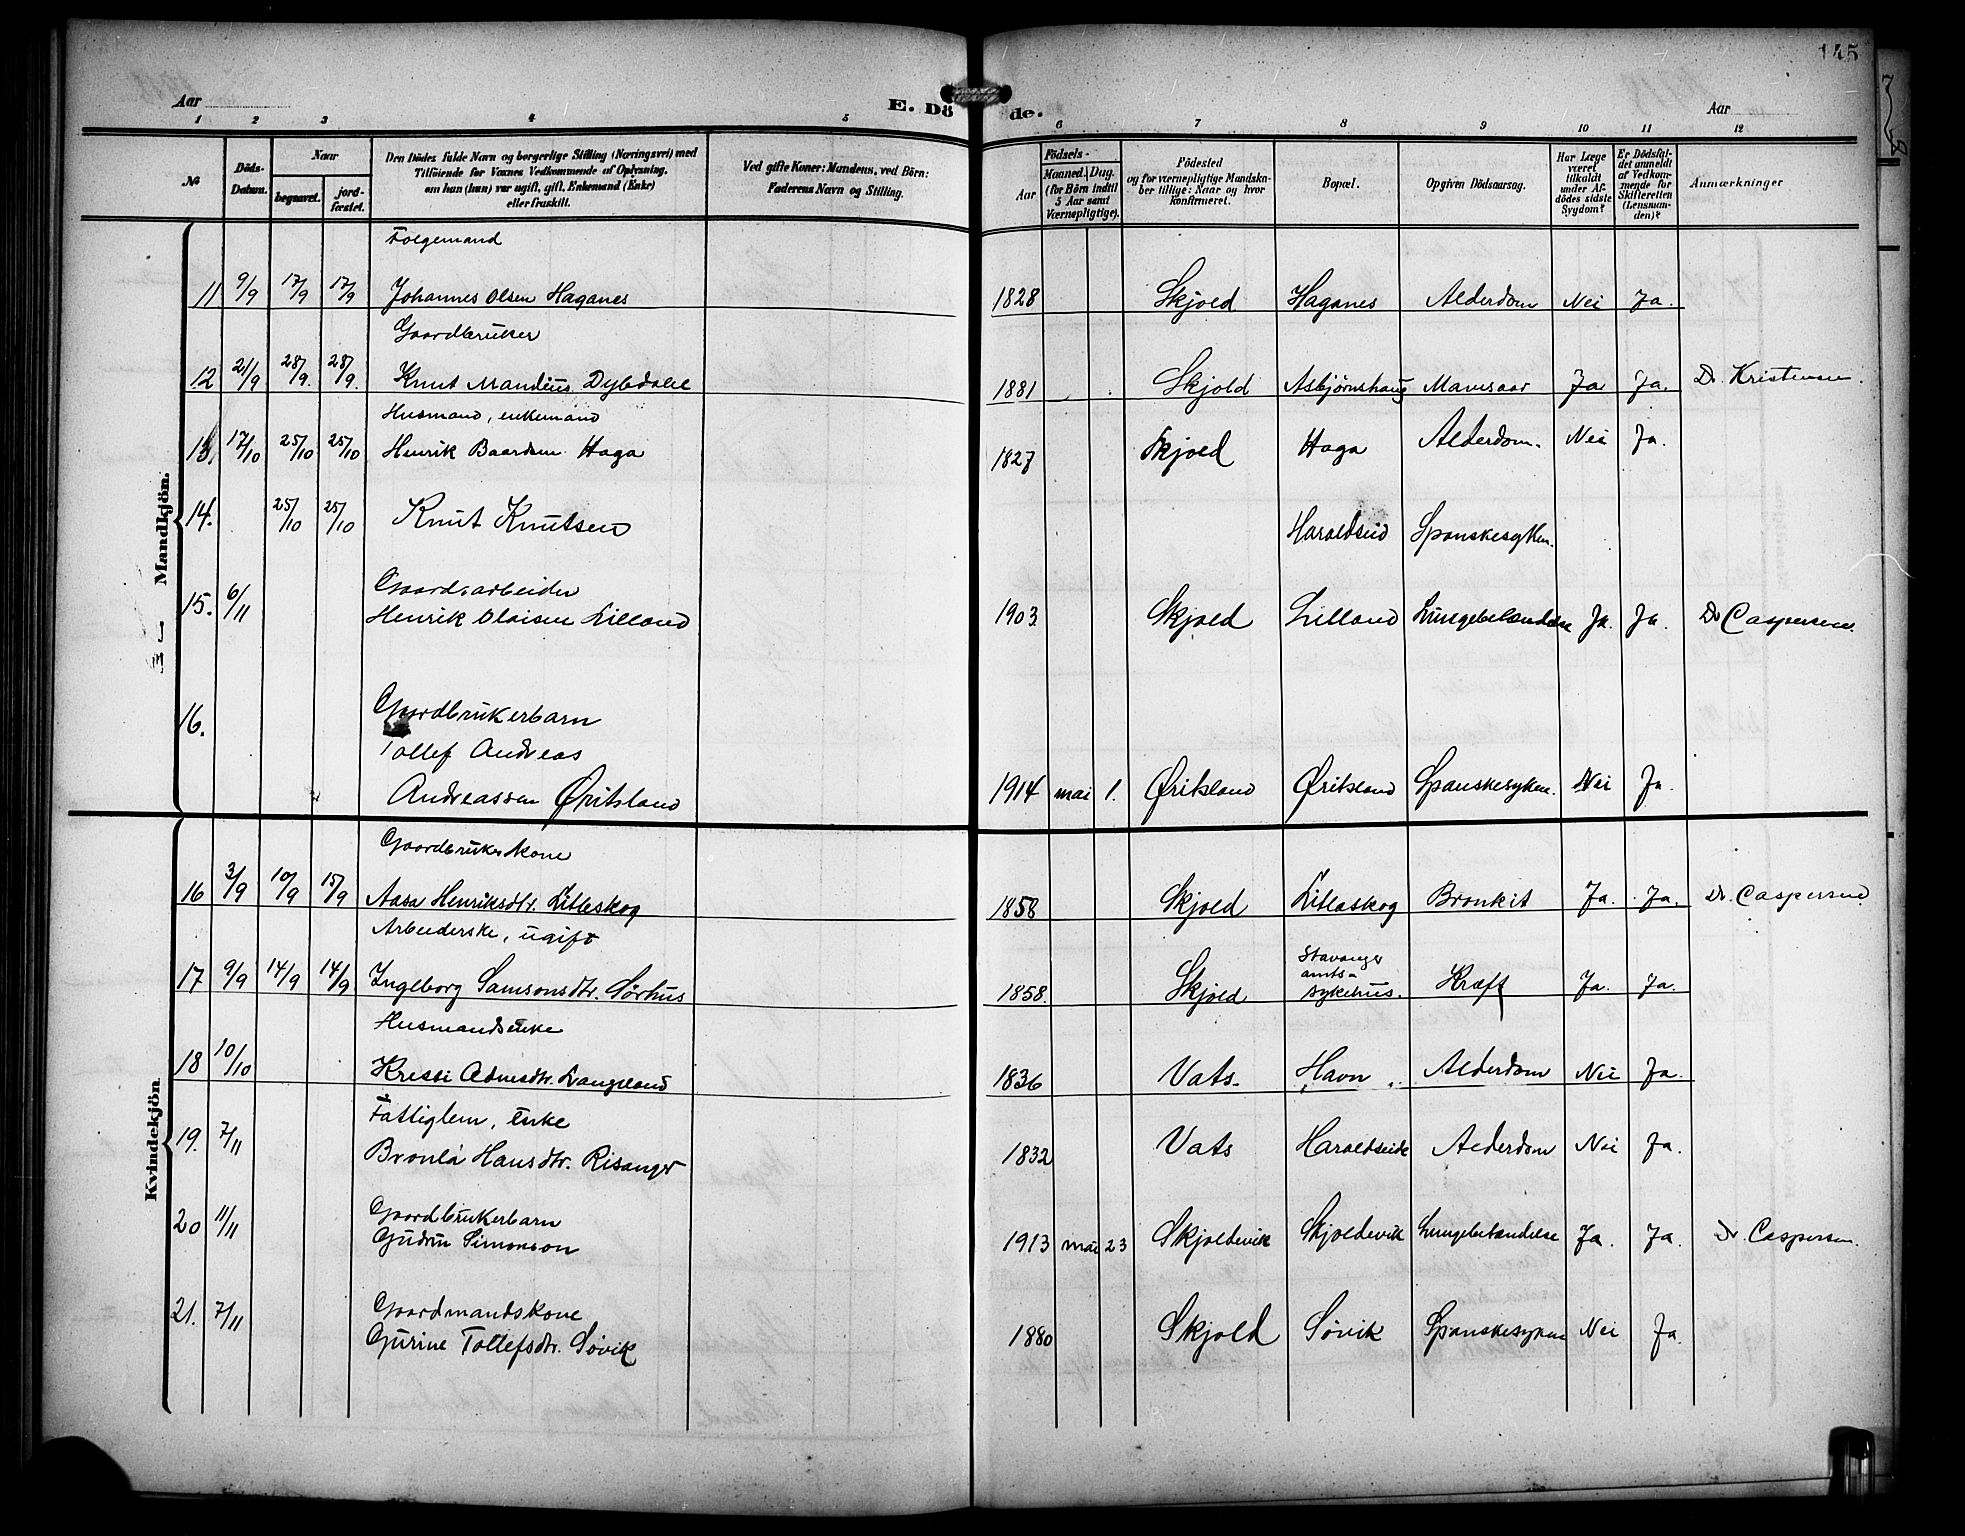 145
Aar
E. Dö
de.
Aar
1 2 3 4 5 6 7 8 9 10 11 12
No
Döds-Datum.
Naar
begravet.
jord-fæstet.
Den Dödes fulde Navn og borgerlige Stilling (Næringsvei) med
Tilföiende for Voxnes Vedkommende af Oplysning,
om han (hun) var ugift, gift, Enkemand (Enke)
eller fraskilt.
Ved gifte Koner: Mandens, ved Börn:
Faderens Navn og Stilling.
Födsels-
Aar
Maaned. Dag.
(for Börn indtil
5 Aar samt
Værnepligtige).
Födested
og for værnepligtige Mandska-
ber tillige: Naar og hvor
konfirmeret.
Bopæl.
Opgiven Dödsaarsag.
Har Læge
været
tilkaldt
under Af-
dödes sidste
Sygdom?
Er Dödsfal-
det anmeldt
af Vedkom-
mende for
Skifteretten
(Lensman-
den)?
Anmærkninger
Mandkjön.
Folgemand
11 9/9 17/9 17/9 Johannes Olsen Haganes 1828 Skjold Haganes Alderdom Nei Ja.
Gaardbruker
12 21/9 28/9. 28/9. Knut Mandius Dybdahl 1881 Skjold Asbjørnshaug Mavesaar Ja Ja. Dr. Kristensen.
Husmand, enkemand
13 17/10 25/10 25/10 Henrik Baardsen Haga 1827 Skjold Haga Alderdom. Nei Ja.
14. 25/10 25/10 Knut Knutsen Haraldseid Spanskesyken.
Gaardsarbeider
15. 6/11 Henrik Olaisen Lilland 1903 Skjold Lilland Lungebetændelse Ja. Ja. Dr Caspersen.
16. Gaardbrukerbarn
Tollef Andreas
Andreassen Øritsland 1914 mai 1. Øritsland Øritsland Spanskesyken. Nei Ja.
Kvindekjön.
Gaardbrukerskone
16 3/9 10/9 15/9 Aasa Henriksdtr. Litleskog 1858 Skjold Litlaskog Bronkit Ja. Ja. Dr. Caspersen
Arbeiderske, ugift
17 9/9 14/9 14/9 Ingeborg Samsonsdtr. Sørhus 1858. Skjold Stavanger
amts-
sykehus. Kræft Ja. Ja.
Husmandsenke
18 10/10 Kresti Langeland 1836 Vats. Havn Alderdom Nei Ja.
Fattiglem, Enke
19. 7/11 Hansdtr. Risanger 1832 Vats Haraldseide Alderdom Nei Ja.
Gaardbrukerbarn
20 11/11 Gudrun Simonson 1913 mai 23 Skjoldevik Skjoldevik Lungebetændelse Ja. Ja. Dr Caspersen.
Gaardmandskone
21. 7/11 Gurine Tollefsdtr. Søvik 1880 Skjold Søvik Spanskesyken Nei Ja.